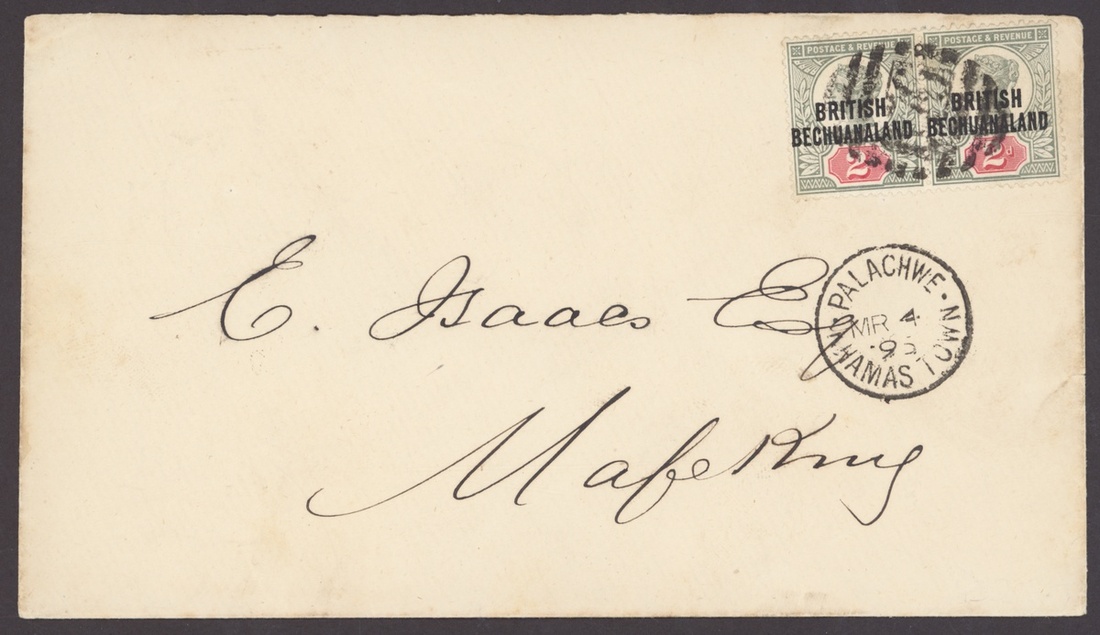 POSTAGE & REVENUE POSTAGE & REVENUE
BRITISH BECHUANALAND
BRITISH BECHUANALAND
2d 2d
E. Isaacs Esq
PALACHWE • KHAMAS TOWN
MR 4
95
Mafeking